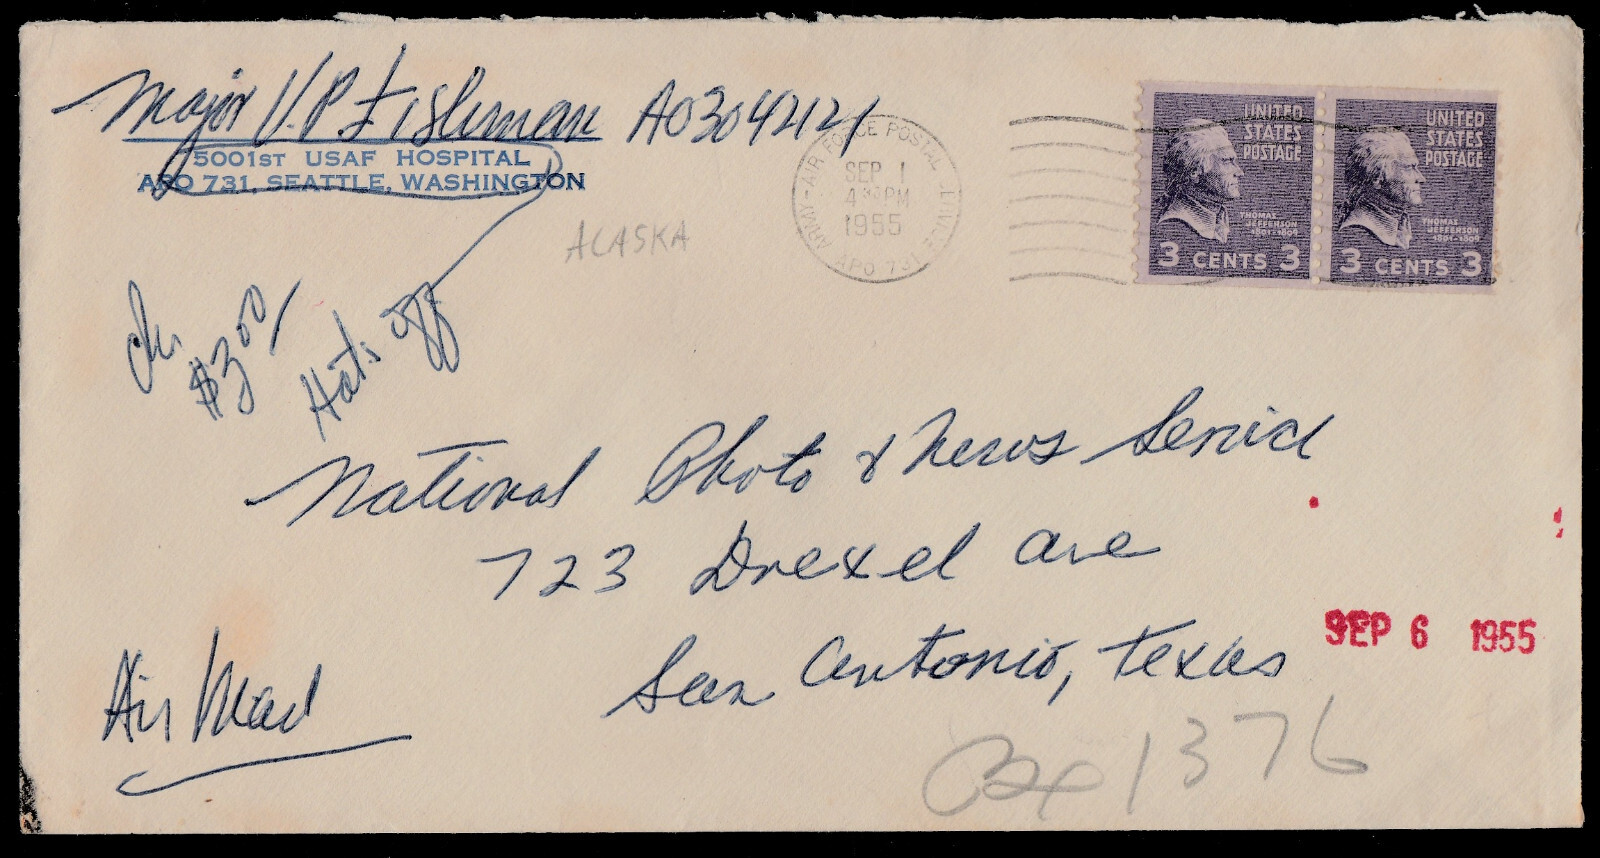 Major V.P. Fishman AO3042121
5001ST USAF HOSPITAL
APO 731, SEATTLE, WASHINGTON
ALASKA
ARMY-AIR FORCE POSTAL SERVICE
SEP 1
4 PM
1955
APO 731
UNITED
STATES
POSTAGE
THOMAS
JEFFERSON
1801-1809
3 CENTS 3
UNITED
STATES
POSTAGE
THOMAS
JEFFERSON
1801-1809
3 CENTS 3
$3.00/
Hats off
National Photo & News Service
723 Drexel Ave
San Antonio, Texas
SEP 6 1955
Air Mail
1376